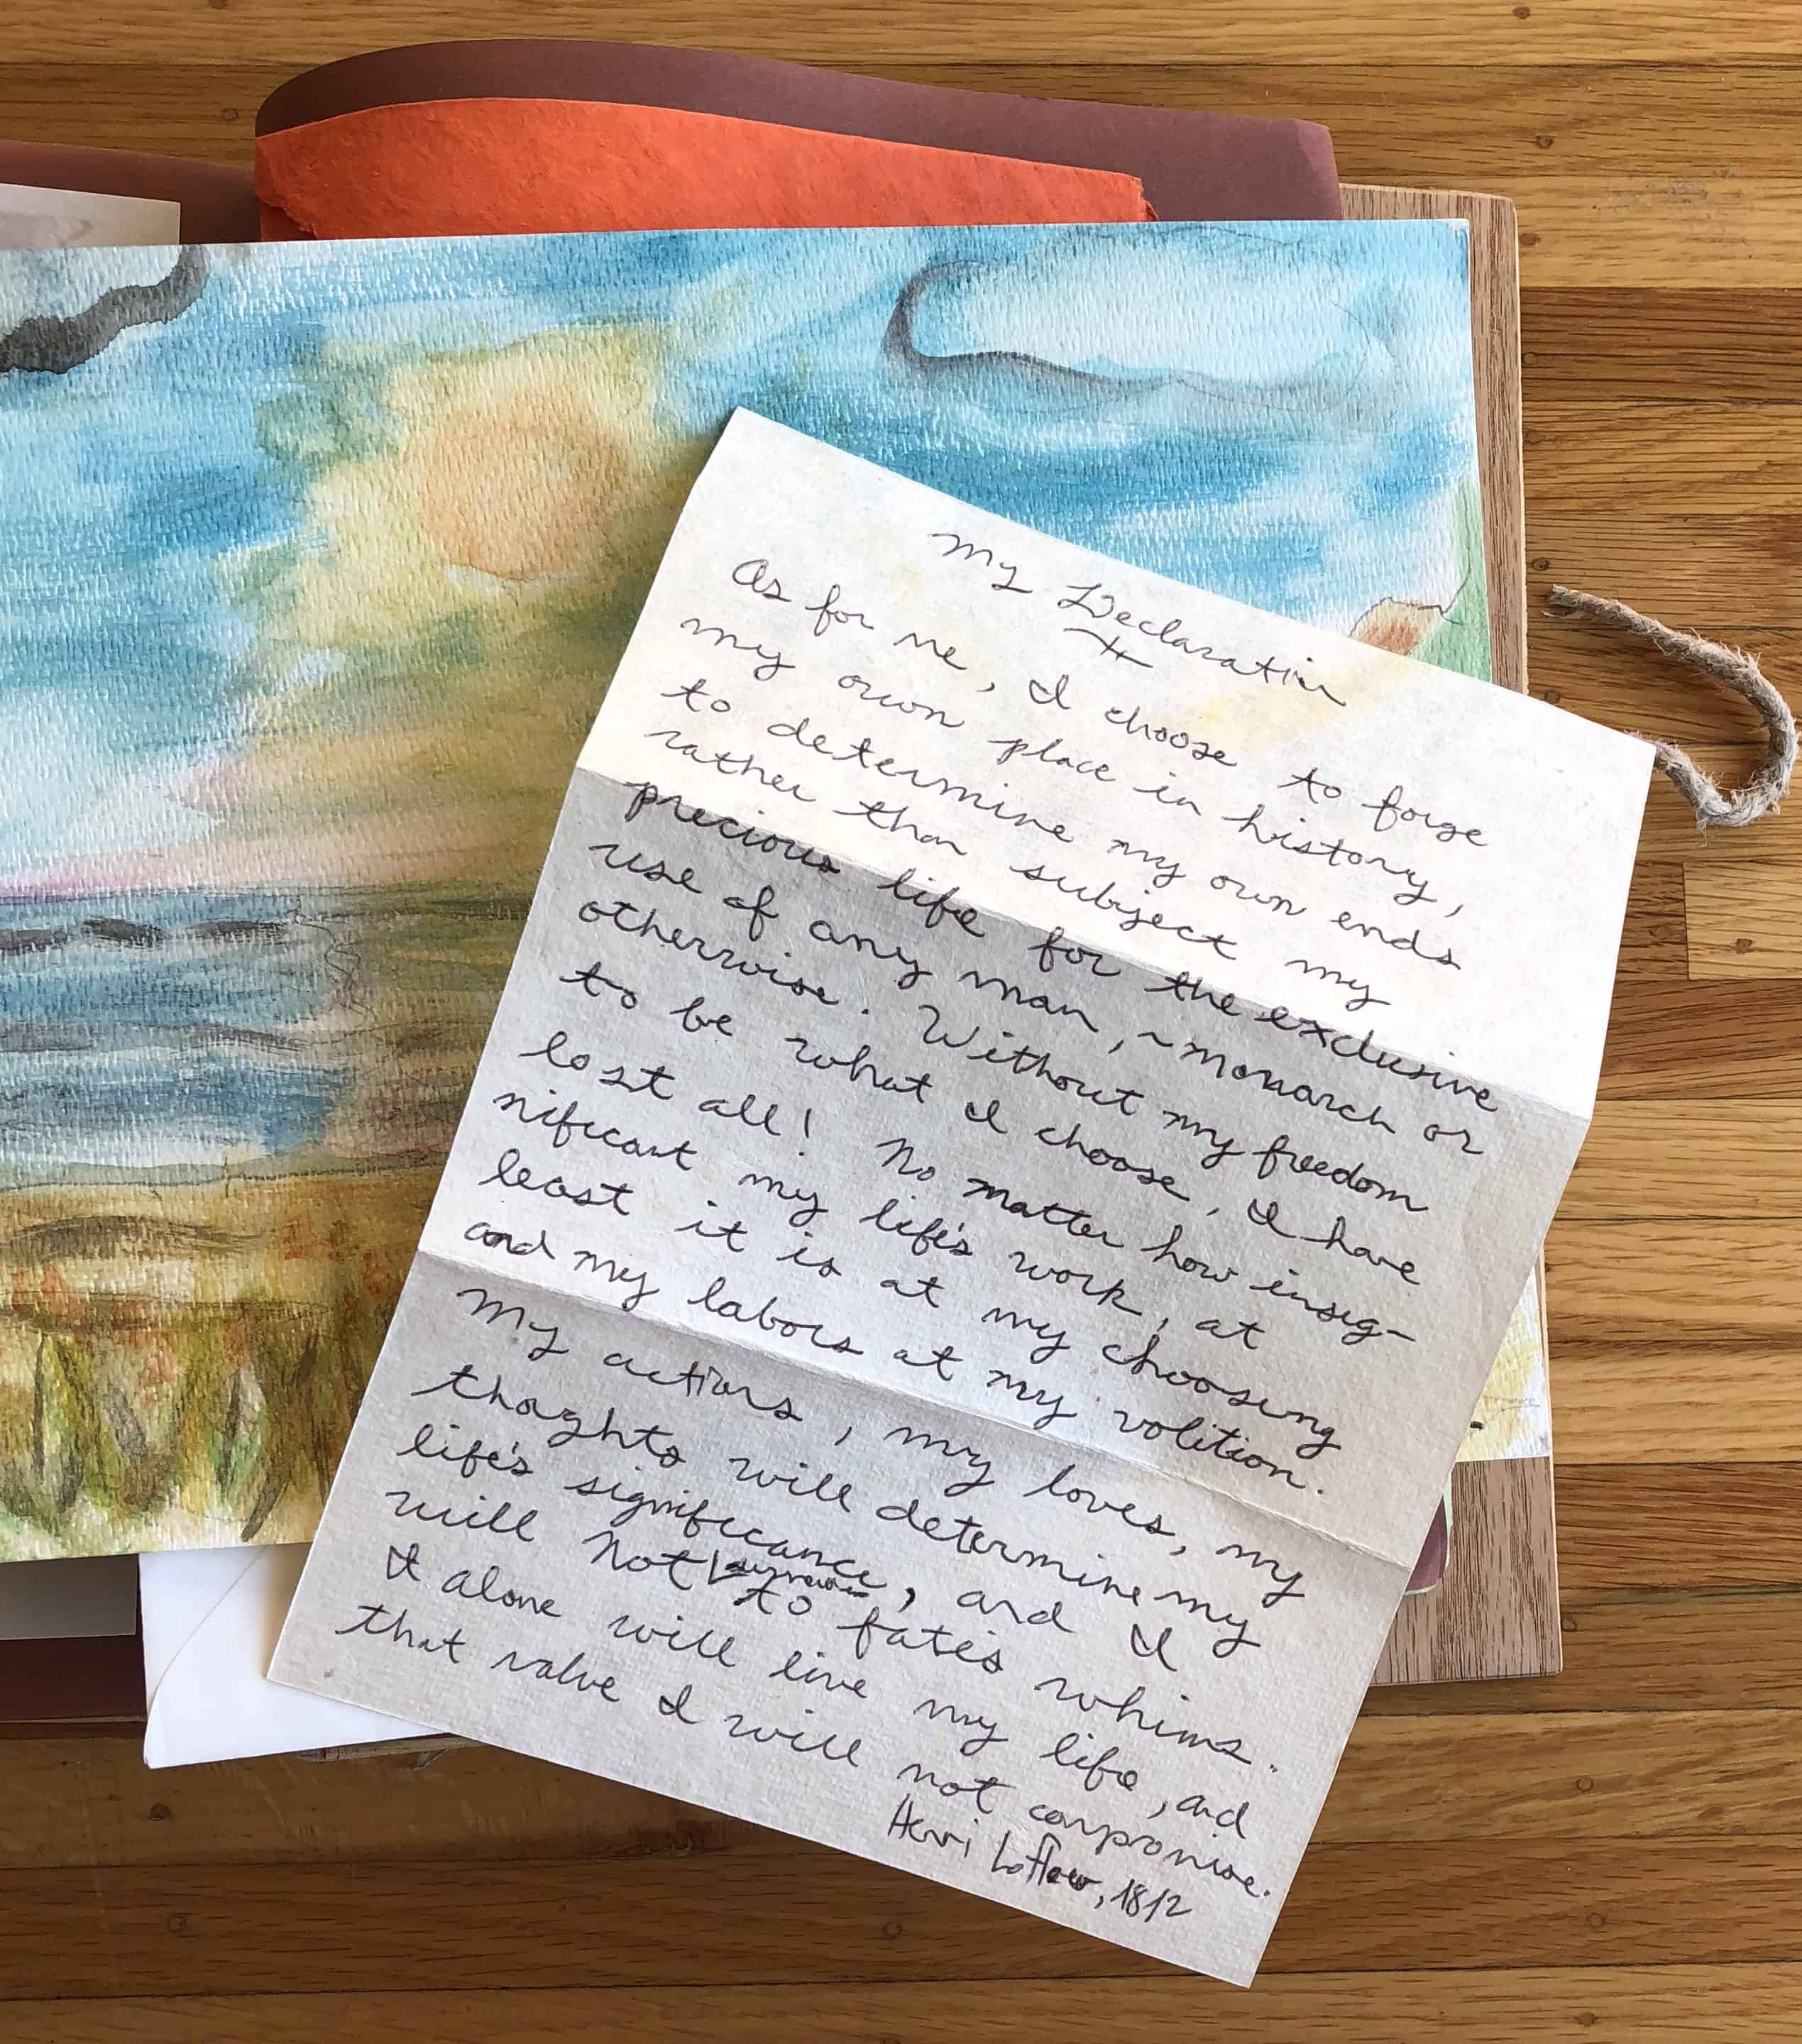 My Declaration
As for me, I choose to forge
my own place in history,
to determine my own ends
rather than subject my
precious life for the exclusive
use of any man, ~ monarch or
otherwise. Without my freedom
to be what I choose, I have
lost all! No matter how insig-
nificant my life's work, at
least it is at my choosing
and my labors at my volition.
My actions, my loves, my
thoghts will determine my
life's significance, and I
surrender
will Not to fate's whims.
I alone will live my life, and
that value I will not compromise.
Henri Loflew, 1812